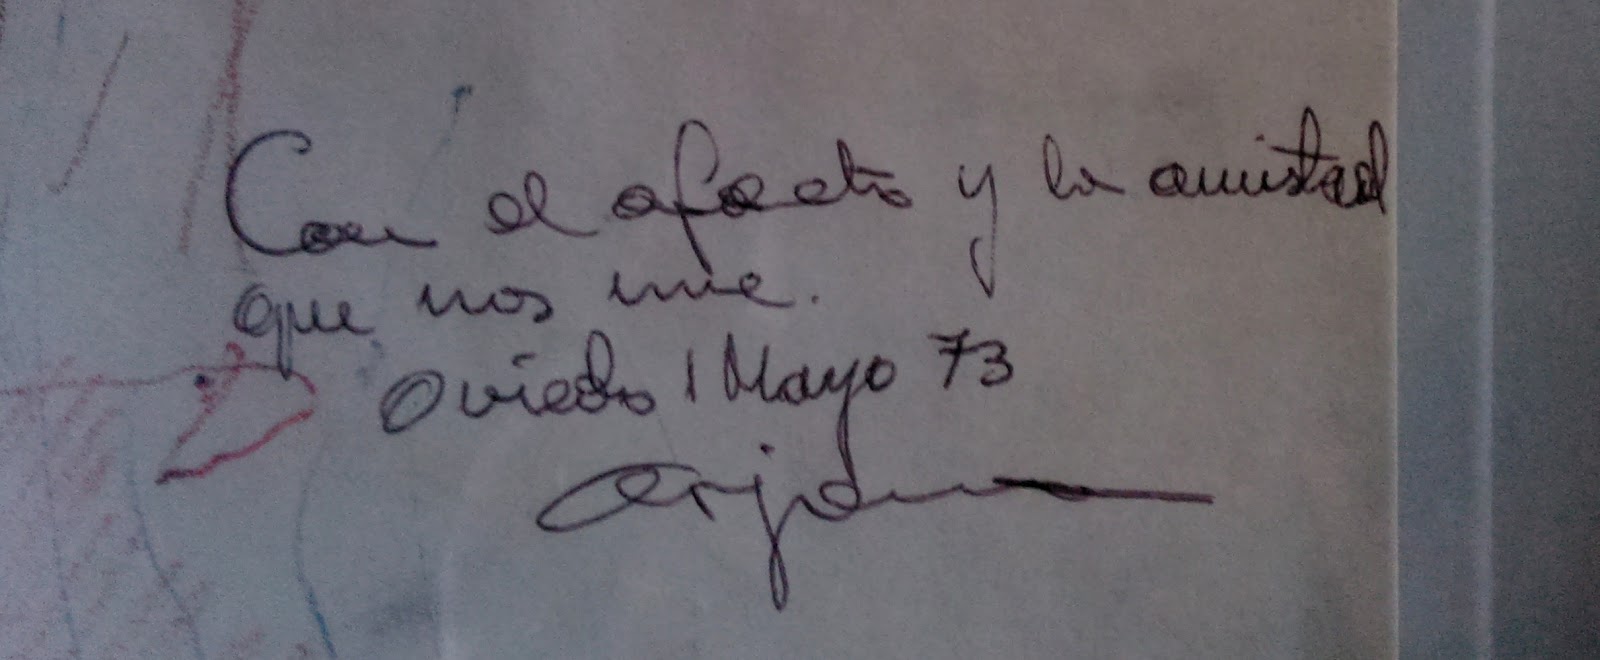 Con el afecto y la amistad
que nos une.
Oviedo 1 Mayo 73